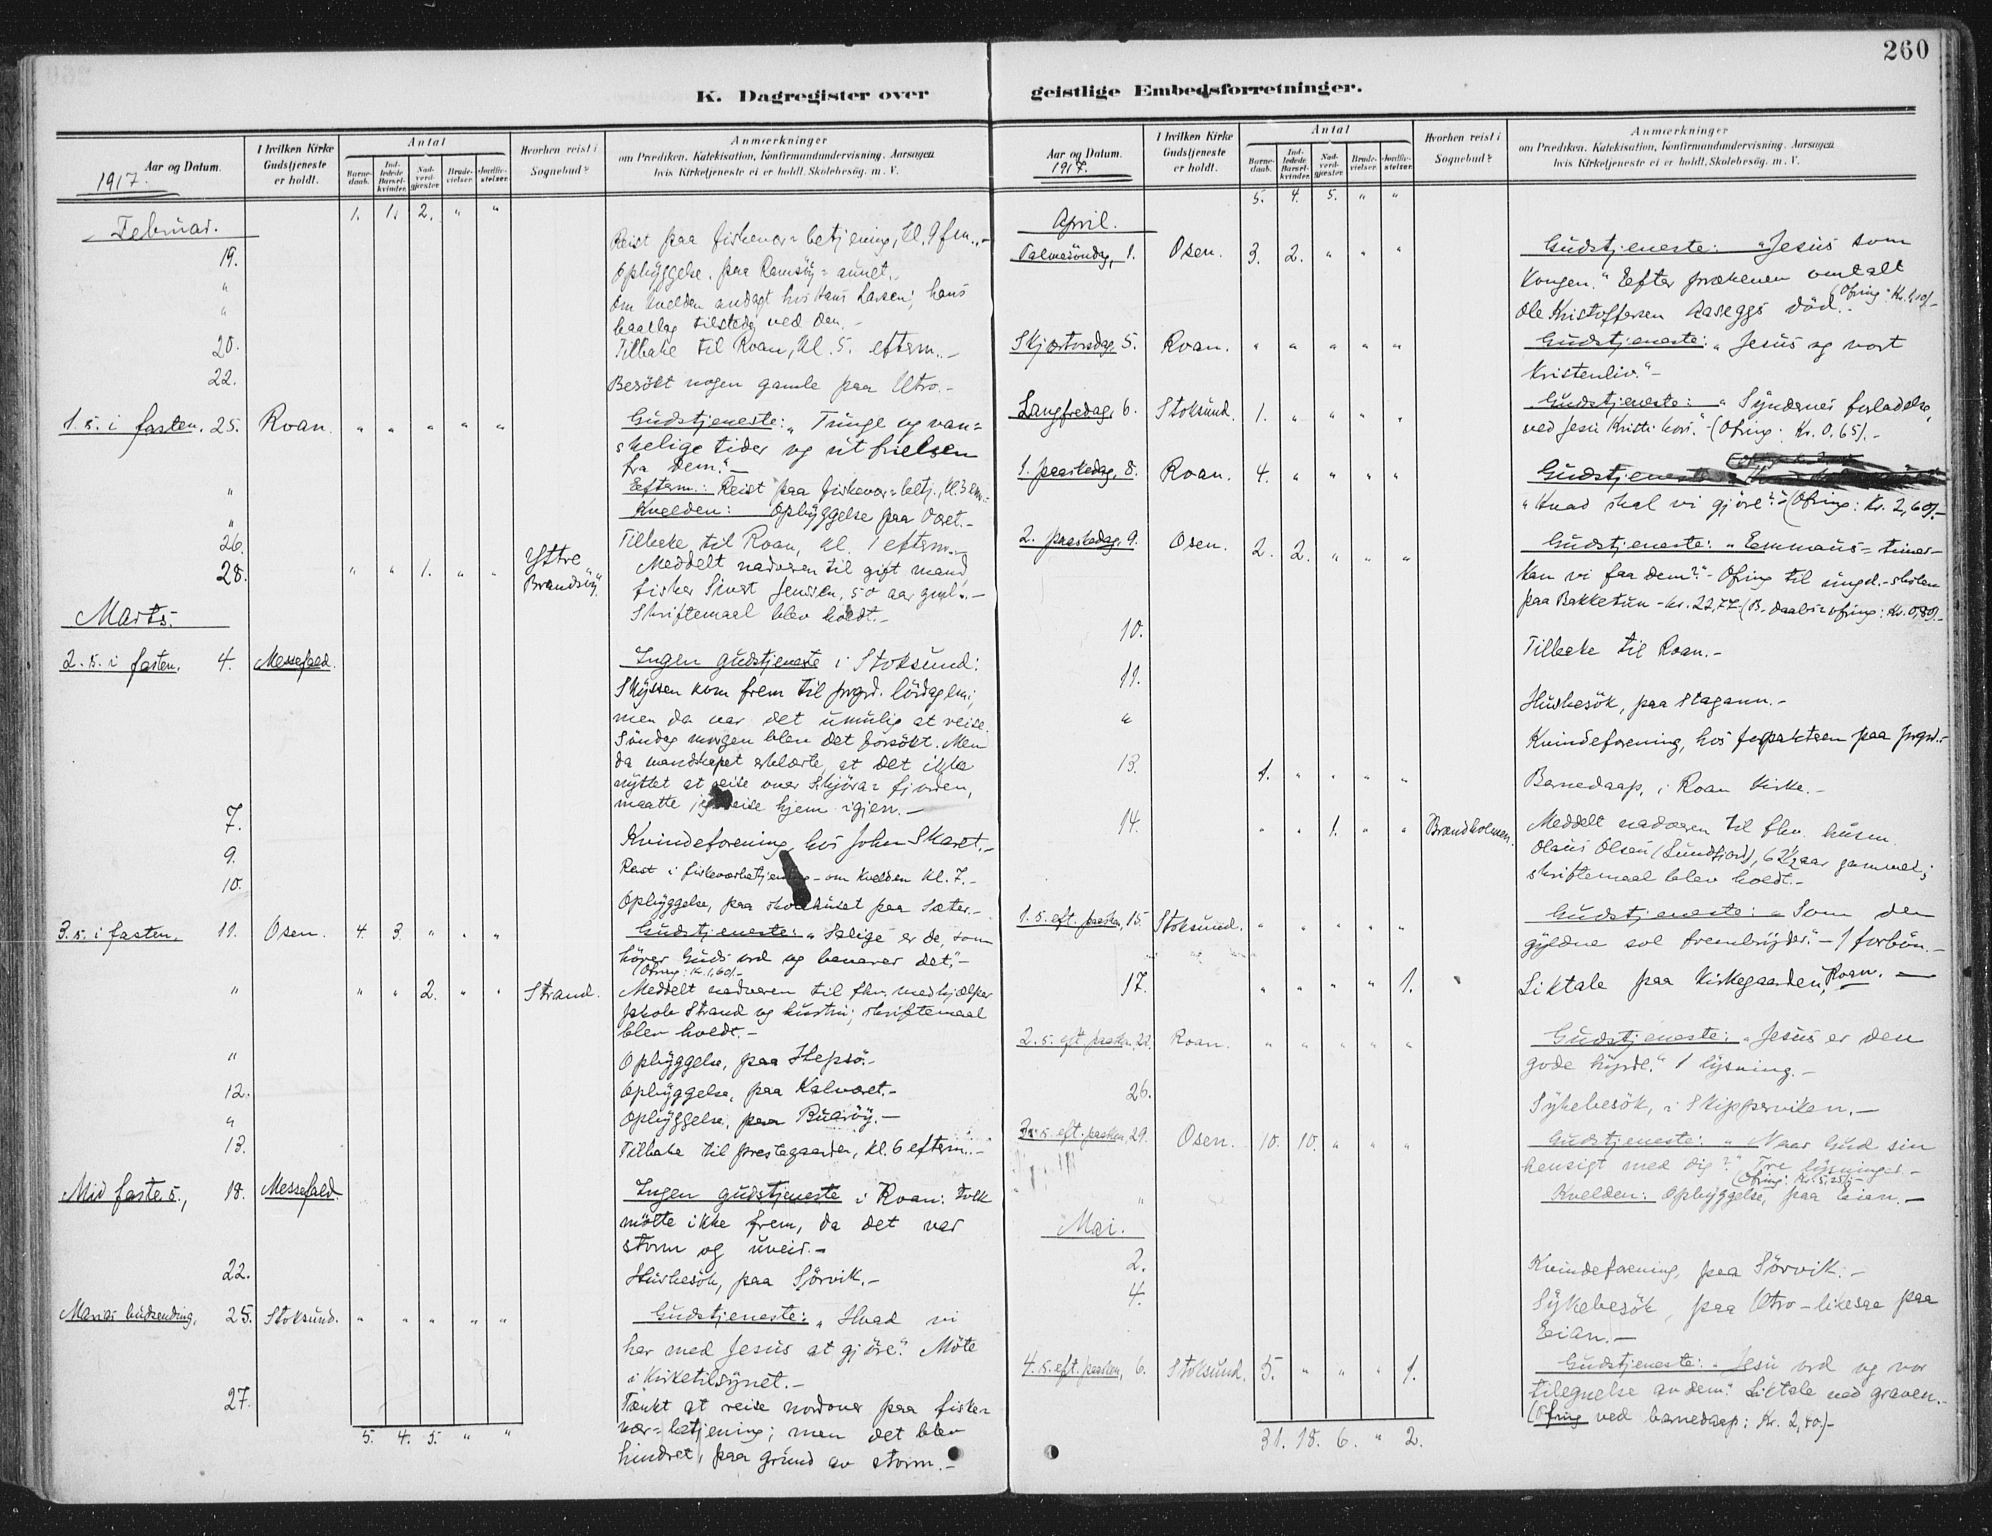 260
K. Dagregister over
geistlige Embedsforretninger.
Aar og Datum.
1917.
I hvilken Kirke
Gudstjeneste
er holdt.
Antal
Barne-
daab.
Ind-
ledede
Barsel-
kvinder.
Nad-
verd-
gjæster.
Brude-
vielser.
Jordfæ-
stelser.
Hvorhen reist i
Sognebud?
Anmærkninger
om Prædiken, Katekisation, Konfirmandundervisning, Aarsagen
hvis Kirketjeneste ei er holdt, Skolebesøg, m. V.
1. 1. 2. " "
Februar.
19. Reist paa fiskevær=betjening, kl. 9 fm..-
" Opbyggelse, paa Ramsöy=aunet.-
" Om kvelden andagt hos Hans Larsen; hans
baatlag tilstede ved den.-
20. Tilbake til Roan, kl. 5. efterm..-
22. Besökt nogen gamle paa Utro.-
1. s. i fasten. 25. Roan. " " " " " Gudstjeneste: "Tunge og van=
skelige tider og utfrielsen
fra dem."-
" Efterm.: Reist paa fiskevær=betj., kl. 3 em.-
" Kvelden: Opbyggelse paa Oset.-
26. Tilbake til Roan, kl. 1 efterm.-
28. " " 1. " " Yttre
Brandsöy. Meddelt nadveren til gift mand,
fisker Sivert Jensen, 50 aar gml..-
Skriftemaal blev holdt.-
Marts.
2. s. i fasten. 4. Messefald. Ingen gudstjeneste i Stoksund:
Skyssen kom frem til prgrd. lördag em;
men da var det umulig at reise.
Söndag morgen blev det forsökt. Men
da mandskapet erklærte, at det ikke
nyttet at reise over Skjöra=fjorden,
maatte jeg reise hjem igjen.-
7. Kvindeforening, hos John Skaret.-
9. Reist i fiskeværbetjening - om kvelden kl. 7.-
10. Opbyggelse, paa skolehuset paa Sæter.-
3. s. i fasten. 11. Osen. 4. 3. " " " Gudstjeneste: "Salige er de, som
hörer Guds ord og bevarer det."-
(Ofring: Kr. 1,60).-
" " " 2. " " Strand. Meddelt nadveren til fhv. medhjælper
Jakob Strand og hustru; skriftemaal
blev holdt.-
" Opbyggelse, paa Hepsö.-
12. Opbyggelse, paa Kalvøet.-
" Opbyggelse, paa Buaröy.-
13. Tilbake til prestegaarden, kl. 6 efterm..-
Midfaste s., 18. Messefald. Ingen gudstjeneste i Roan: Folk
mötte ikke frem, da det var
storm og uveir.-
22. Husbesök, paa Sörvik.-
Marias budsending, 25. Stoksund. " " " " " Gudstjeneste: "Hvad vi
har med Jesus at gjöre." Möte
i kirketilsynet.-
27. Tænkt at reise nordover paa fiske=
vær=betjening; men det blev
hindret, paa grund av storm.-
5. 4. 5. " "
Aar og Datum.
1917.
I hvilken Kirke
Gudstjeneste
er holdt.
Antal
Barne-
daab.
Ind-
ledede
Barsel-
kvinder.
Nad-
verd-
gjæster.
Brude-
vielser.
Jordfæ-
stelser.
Hvorhen reist i
Sognebud?
Anmærkninger
om Prædiken, Katekisation, Konfirmandundervisning, Aarsagen
hvis Kirketjeneste ei er holdt, Skolebesøg, m. V.
5. 4. 5. " "
April.
Palmesöndag, 1. Osen. 3. 2. " " " Gudstjeneste: "Jesus som
Kongen." Efter prækenen omtalt
Ole Kristoffersen Aaseggs död.
Skjærtorsdag 5. Roan. " " " " " Gudstjeneste: "Jesus og vort
kristenliv."-
Langfredag, 6. Stoksund. 1. " " " " Gudstjeneste: "Syndernes forladelse,
ved Jesu Kristi kors."- (Ofring: Kr. 0,65).-
1. paaskedag, 8. Roan. 4. " " " " Gudstjeneste
"Hvad skal vi gjöre?"- (Ofring: Kr. 2,60).-
2. paaskedag, 9. Osen. 2. 2. " " " Gudstjeneste: "Emmaus=timer-
kan vi faa dem?"- Ofring til ungd.-skolen
paa Bakketun - kr. 22,77.- (B.daabs=ofring: Kr. 0,80).-
10. Tilbake til Roan.-
11. Husbesök, paa Stagann.-
" Kvindeforening, hos forpakteren paa prgrd.-
13. 1. " " " " Barnedaap, i Roan kirke.-
14. " " 1. " " Brandholmen. Meddelt nadveren til fhv. husm.
Olaus Olsen (Sundfjord), 62½ aar gammel;
skriftemaal blev holdt.-
1. s. eft. paaske, 15. Stoksund. " " " " " Gudstjeneste: "Som den
gyldne sol frembryder."- 1 forbön.-
17. " " " " 1. Liktale paa kirkegaarden, Roan.-
2. s. eft. paaske, 22. Roan. " " " " " Gudstjeneste: "Jesus er den
gode hyrde." 1 lysning.-
26. Sykebesök, i Skipperviken.-
3. s. eft. paasken, 29. Osen. 10. 10. " " " Gudstjeneste: "Naar Gud sin
hensigt med dig?" Tre lysninger.-
(Ofring: Kr. 5,25).-
" Kvelden: Opbyggelse, paa Eian.-
Mai.
2. Kvindeforening, paa Sörvik.-
4. Sykebesök, paa Utro - likesaa paa
Eian.-
4. s. eft. paasken, 6. Stoksund. 5. " " " 1. Gudstjeneste: "Jesu ord og vor
tilegnelse av dem." Liktale ved graven.-
(Ofring ved barnedaap: Kr. 2,40).-
31. 18. 6. " 2.